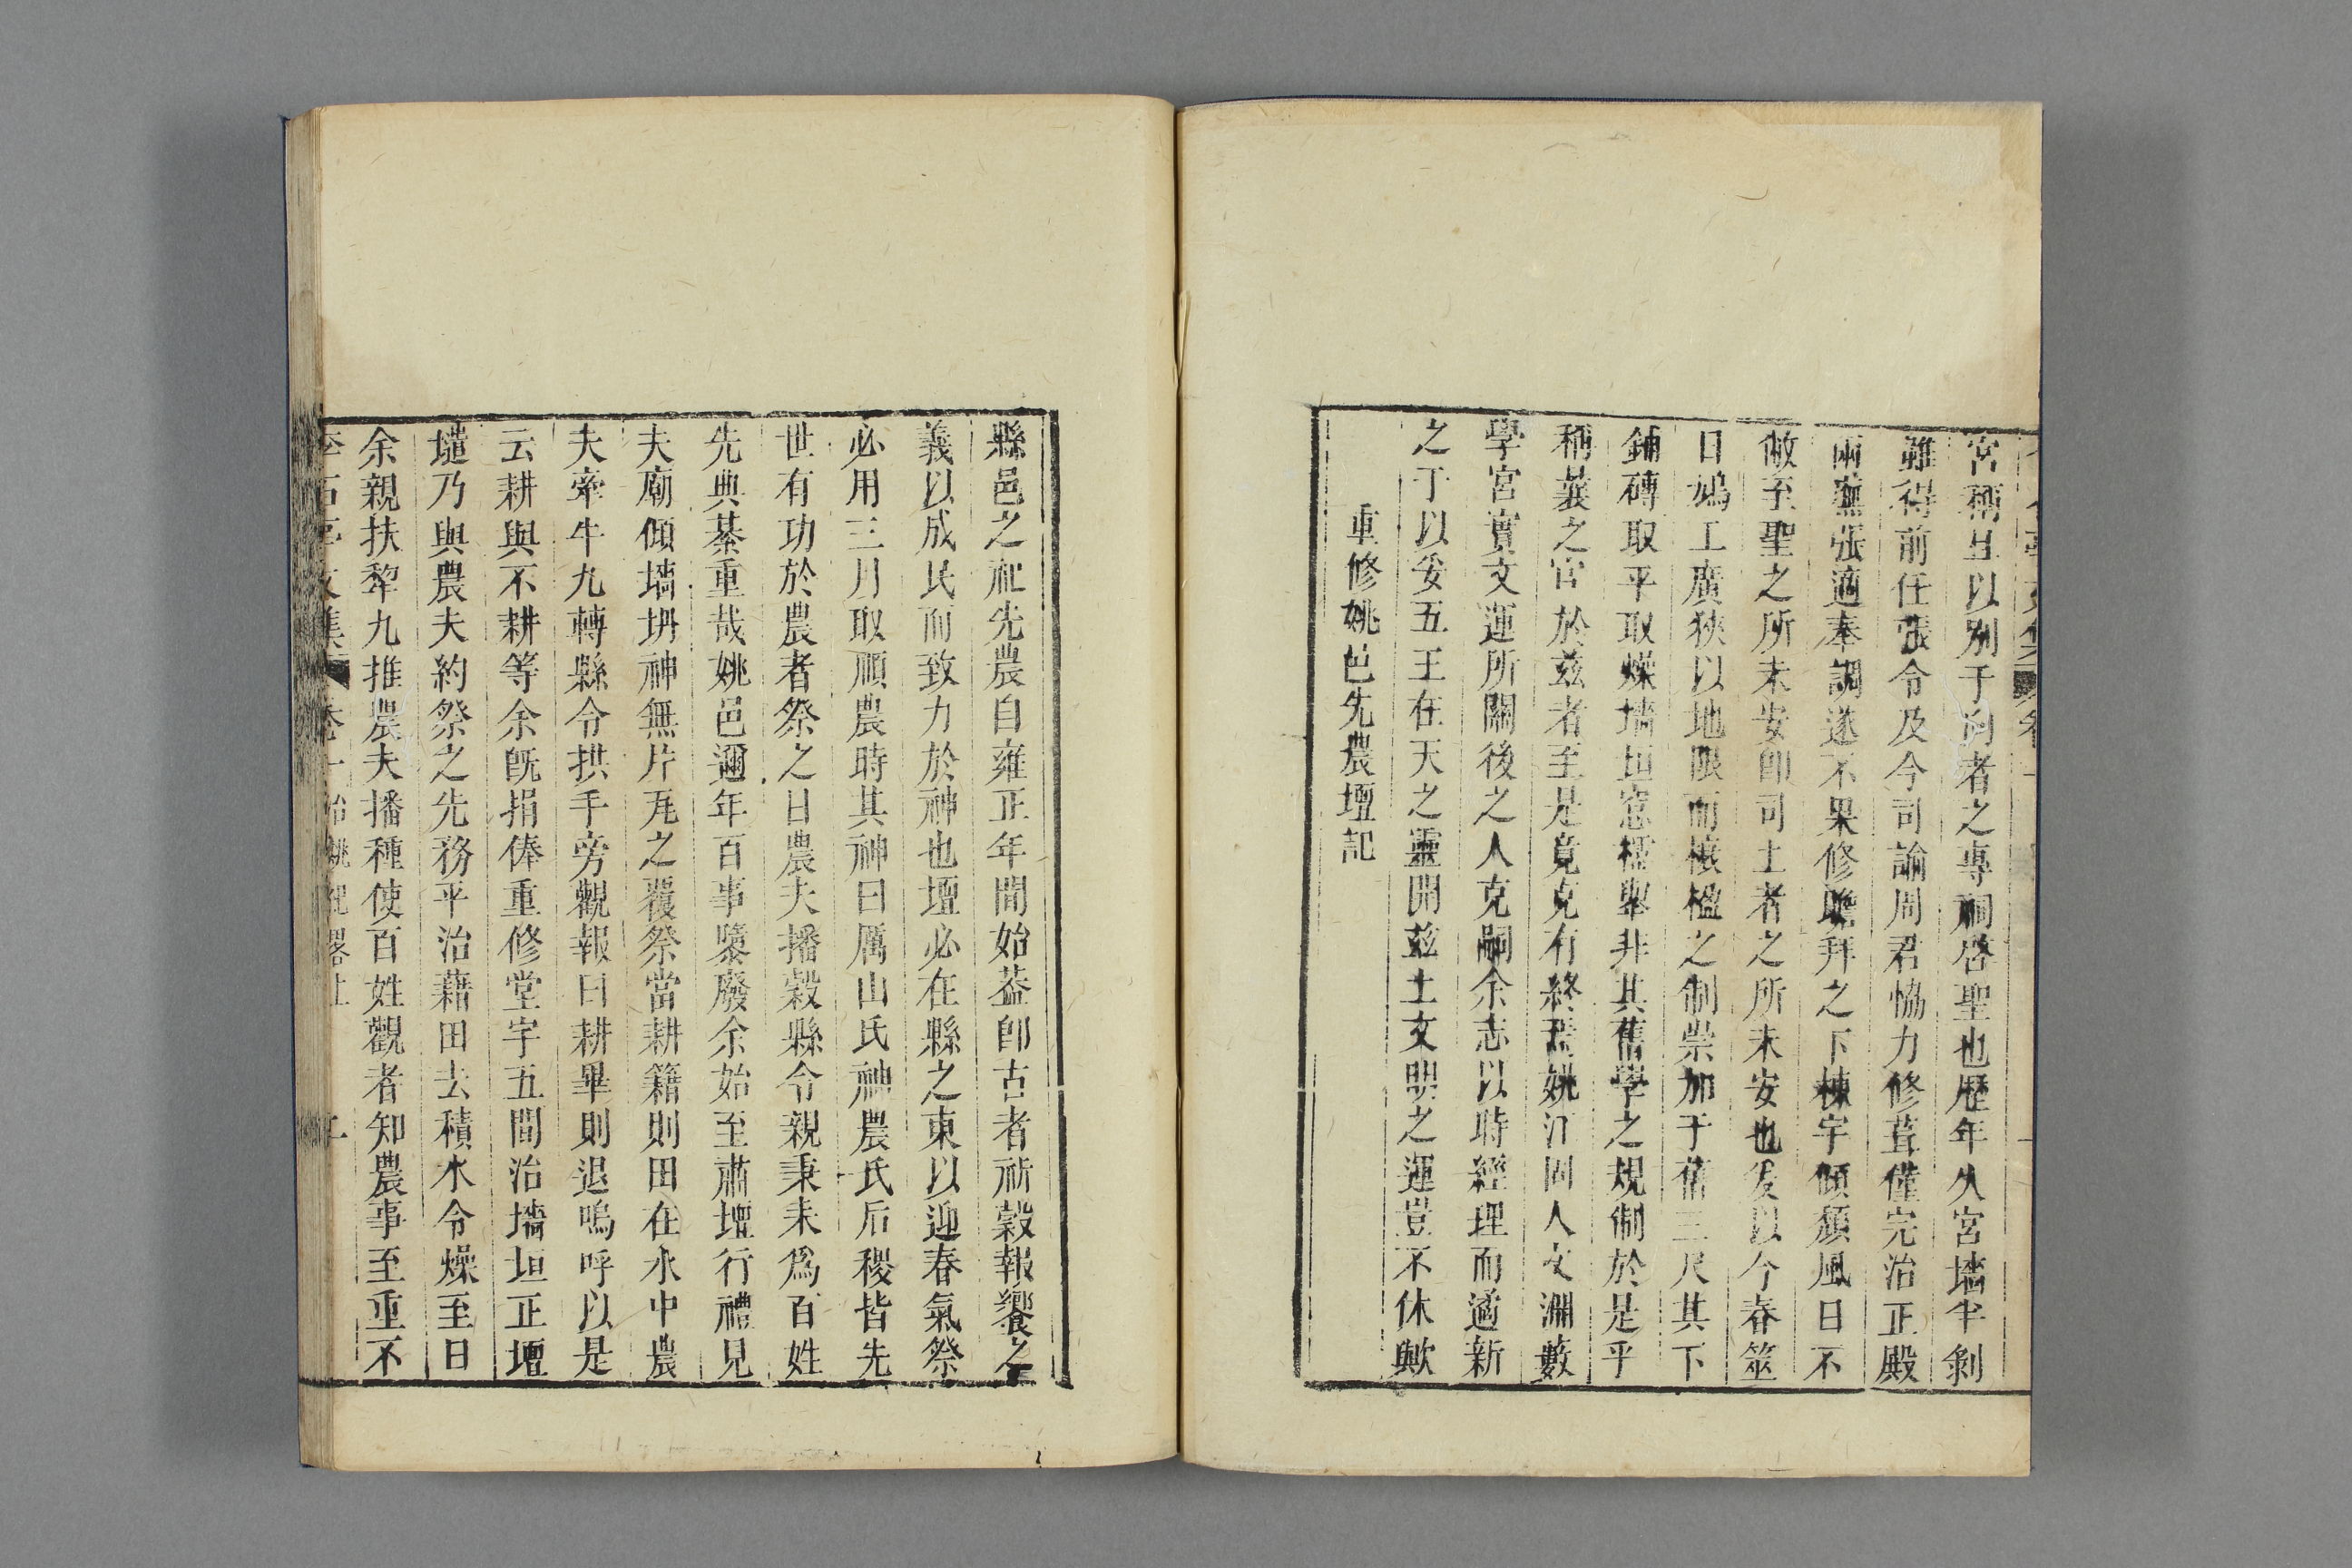 宮稱且以别于向者之專祠啓聖也歷年久宮墻半剝
雖得前任張令及今司諭周君恊力修葺僅完治正殿
兩蕪張適奉調遂不果修瞻拜之下棟宇傾頹風日不
敝至聖之所未安卽司土者之所未安也爰以今春筮
日鳩工廣狹以地限而榱楹之制崇加于舊三尺其下
鋪磚取平取燥墻垣窓櫺舉非其舊學之規制於是乎
稱曩之宮於兹者至是竟克有終焉姚江固人文淵藪
學宮實文運所關後之人克嗣余志以時經理而適新
之于以妥五王在天之靈開兹土文明之運豈不休歟
重修姚邑先農壇記
縣邑之祀先農自雍正年間始葢卽古者祈穀報饗之
義以成民而致力於神也壇必在縣之東以迎春氣祭
必用三月取順農時其神曰厲山氏神農氏后稷皆先
世有功於農者祭之日農夫播穀縣令親秉耒爲百姓
先典綦重哉姚邑邇年百事隳廢余始至肅壇行禮見
夫廟傾墻坍神無片瓦之覆祭當耕籍則田在水中農
夫牽牛九轉縣令拱手旁觀報曰耕畢則退嗚呼以是
云耕與不耕等余旣捐俸重修堂宇五間治墻垣正壇
壝乃與農夫約祭之先務平治藉田去積水令燥至日
余親扶犂九推農夫播種使百姓觀者知農事至重不